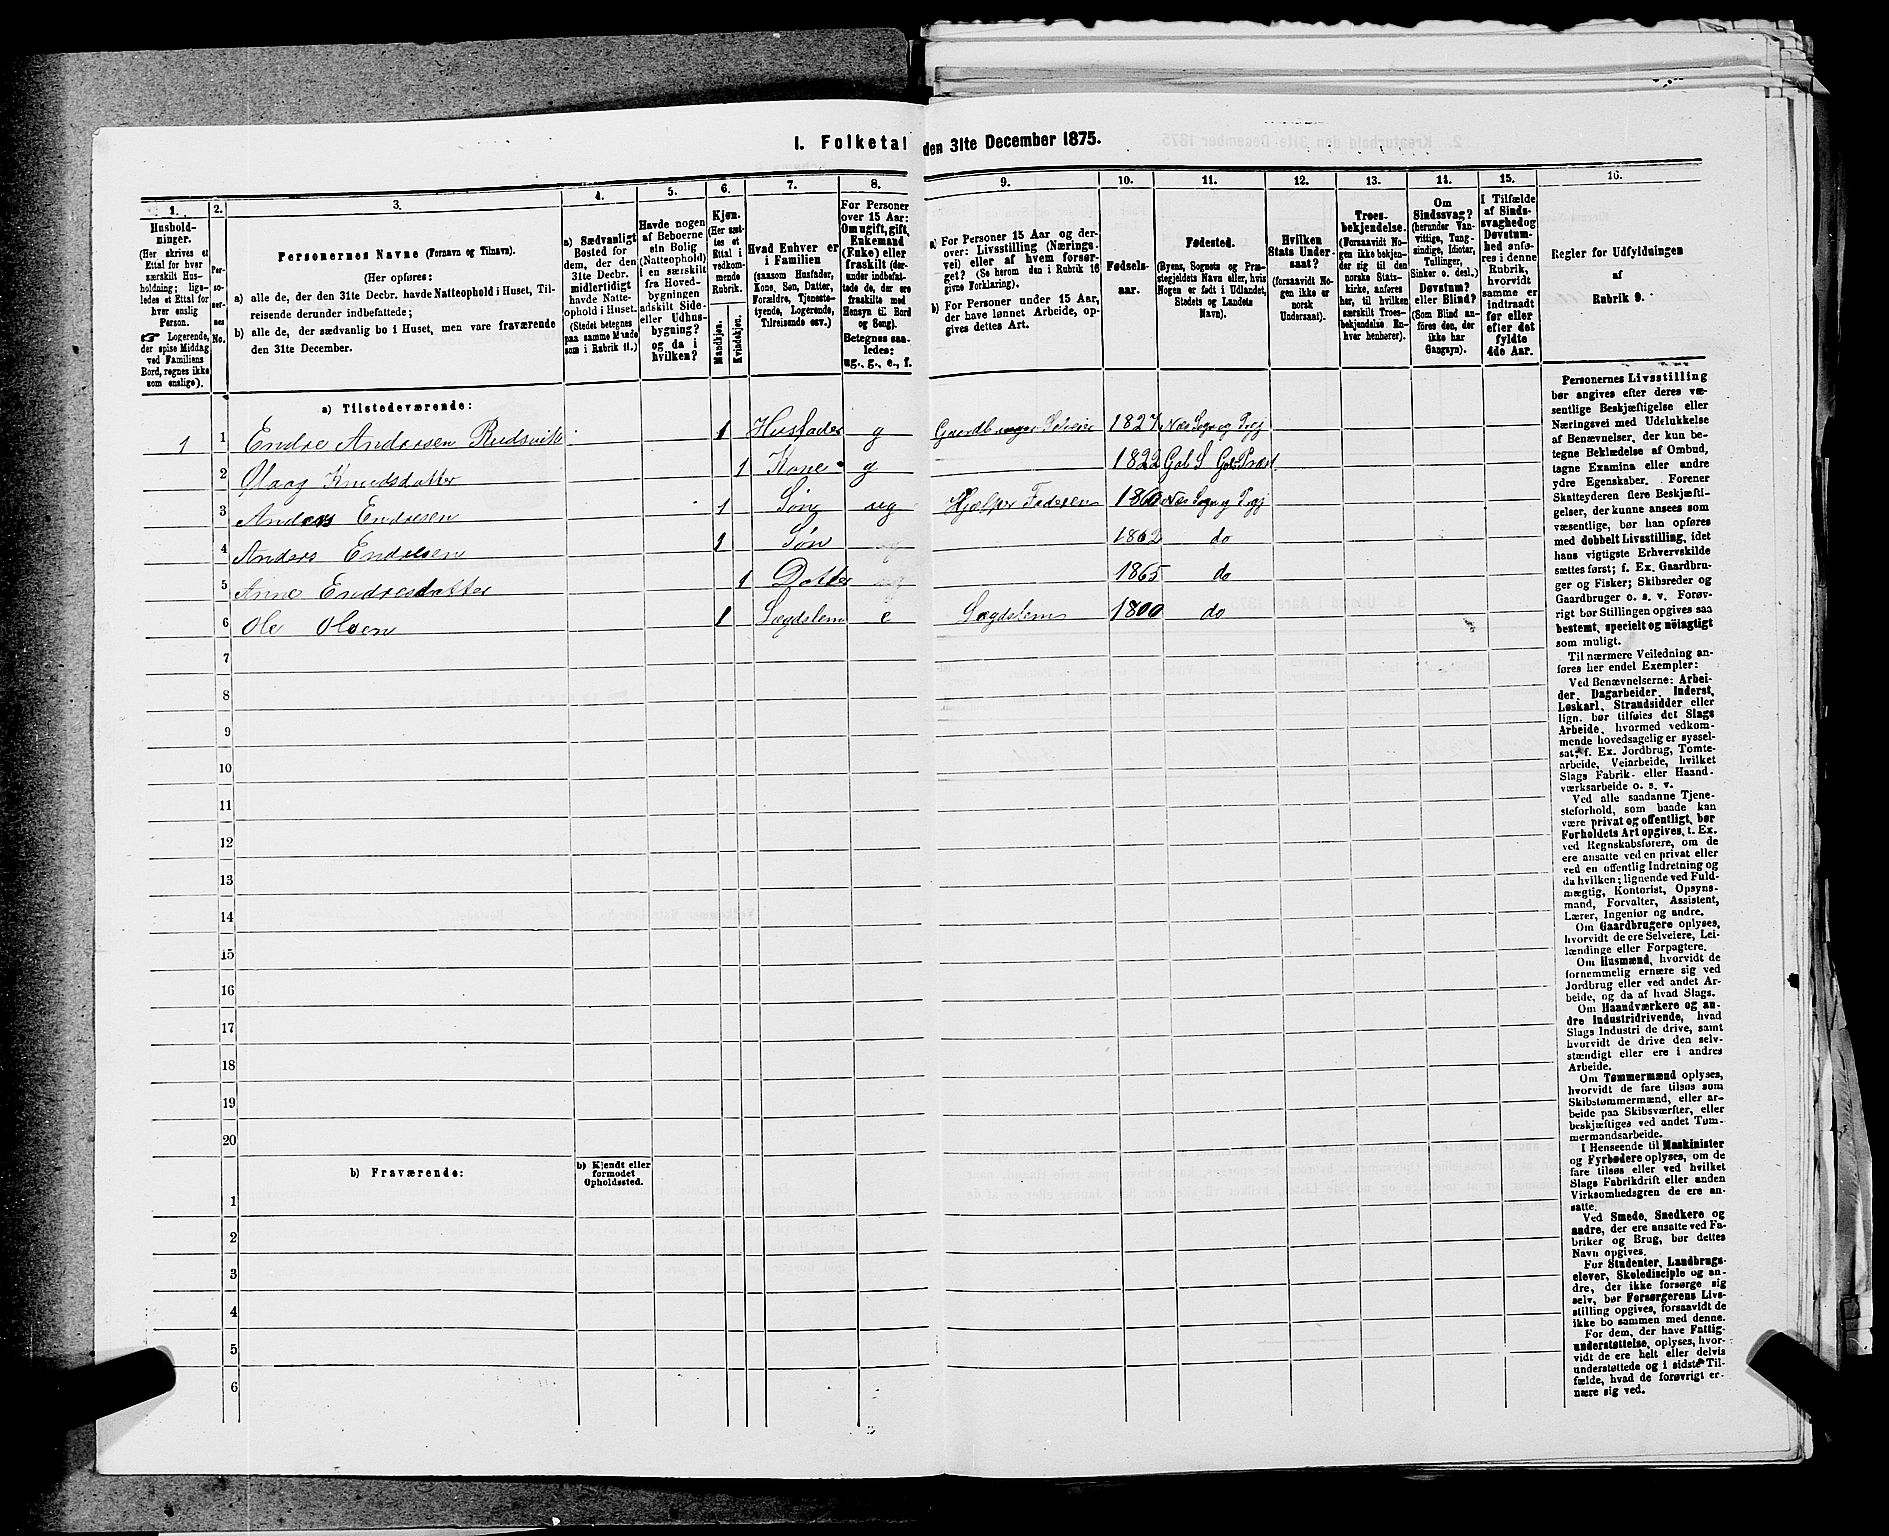 I. Folketal den 31te December 1875.
1. 2. 3. 4. 5. 6. 7. 8. 9. 10. 11. 12. 13. 14. 15. 16.
Husholdninger.
(Her skrives et
Ettal for hver
særskilt Hus-
holdning; lige-
ledes et Ettal for
hver enslig
Person.
☞ Logerende,
der spise Middag
ved Familiens
Bord, regnes ikke
som enslige).
Per-
so-
ner-
nes
No.
Personernes Navne (Fornavn og Tilnavn).
(Her opføres:
a) alle de, der den 31te Decbr. havde Natteophold i Huset, Til-
reisende derunder indbefattede;
b) alle de, der sædvanlig bo i Huset, men vare fraværende
den 31te December.
a) Sædvanligt
Bosted for
dem, der den
31te Decbr.
midlertidigt
havde Natte-
ophold i Huset.
(Stedet betegnes
paa samme Maade
som i Rubrik 11.)
Havde nogen
af Beboerne
sin Bolig
(Natteophold)
i en særskilt
fra Hoved-
bygningen
adskilt Side-
eller Udhus-
bygning?
og da i
hvilken?
Kjøn.
(Her sæt-
tes et
Ettal i
vedkom-
mende
Rubrik.
Mandkjøn.
Kvindekjøn.
Hvad Enhver er
i Familien
(saasom Husfader,
Kone, Søn, Datter,
Forældre, Tjeneste-
tyende, Logerende,
Tilreisende osv.)
For Personer
over 15 Aar:
Om ugift, gift,
Enkemand
(Enke) eller
fraskilt (der-
under indbefat-
tede de, der ere
fraskilte med
Hensyn til Bord
og Seng).
Betegnes saa-
ledes:
ug., g., e., f.
a) For Personer 15 Aar og der-
over: Livsstilling (Nærings-
vei) eller af hvem forsør-
get? (Se herom den i Rubrik 16
givne Forklaring).
b) For Personer under 15 Aar,
der have lønnet Arbeide, op-
gives dettes Art.
Fødsels-
aar.
Fødested.
(Byens, Sognets og Præ-
stegjeldets Navn eller, hvis
Nogen er født i Udlandet,
Stedets og Landets
Navn).
Hvilken
Stats Under-
saat?
(forsaavidt No-
gen ikke er
norsk
Undersaat).
Troes-
bekjendelse.
(Forsaavidt No-
gen ikke bekjen-
der sig til den
norske Stats-
kirke, anføres
her, til hvilken
særskilt Troes-
bekjendelse En-
hver henhører).
Om
Sindssvag?
(herunder Van-
vittige, Tung-
sindige, Idioter,
Tullinger,
Sinker o. desl.)
Døvstum?
eller Blind?
(Som Blind an-
føres den, der
ikke har
Gangsyn).
I Tilfælde
af Sinds-
svaghed og
Døvstum-
hed anfø-
res i denne
Rubrik,
hvorvidt
samme er
indtraadt
før eller
efter det
fyldte
4de Aar.
Regler for Udfyldningen
af
Rubrik 9.
a) Tilstedeværende:
1 1 Endre Andersen Rudsvik 1 Husfader g Gaardbruger Selveier 1827 Næs Sogn og Prgj
2 Maag Knudsdatter 1 Kone g 1822 Gol S Gols Præst
3 Anders Endresen 1 Søn ug Hjælper Faderen 1860 Næs Sogn og Prgj
4 Anders Endresen 1 Søn 1862 do
5 Anne Endresdatter 1 Datter 1865 do
6 Ole Olsen 1 Lægdslem e Lægdslem 1800 do
7
8
9
10
11
12
13
14
15
16
17
18
19
20
b) Fraværende:
b) Kjendt eller
formodet
Opholdssted.
1
2
3
4
5
6
Personernes Livsstilling
bør angives efter deres væ-
sentlige Beskjæftigelse eller
Næringsvei med Udelukkelse
af Benævnelser, der kun be-
tegne Beklædelse af Ombud,
tagne Examina eller andre
ydre Egenskaber. Forener
Skatteyderen flere Beskjæfti-
gelser, der kunne ansees som
væsentlige, bør han opføres
med dobbelt Livsstilling, idet
hans vigtigste Erhvervskilde
sættes først; f. Ex. Gaardbru-
ger og Fisker; Skibsreder og
Gaardbruger o. s. v. Forøv-
rigt bør Stillingen opgives saa
bestemt, specielt og nöiagtigt
som muligt.
Til nærmere Veiledning an-
føres her endel Exempler:
Ved Benævnelserne: Arbei-
der, Dagarbeider, Inderst,
Løskarl, Strandsidder eller
lign. bør tilføies det Slags
Arbeide, hvormed vedkom-
mende hovedsagelig er syssel-
sat; f. Ex. Jordbrug, Tomte-
arbeide, Veiarbeide, hvilket
Slags Fabrik- eller Haand-
værksarbeide o. s. v.
Ved alle saadanne Tjene-
steforhold, som baade kan
være privat og offentligt, bør
Forholdets Art opgives, t. Ex.
ved Regnskabsførere, om de
ere ansatte ved en privat eller
ved en offentlig Indretning og
da hvilken; lignende ved Fuld-
mægtig, Kontorist, Opsyns-
mand, Forvalter, Assistent,
Lærer, Ingeniør og andre.
Om Gaardbrugere oplyses,
hvorvidt de ere Selveiere, Lei-
lændinge eller Forpagtere.
Om Husmænd, hvorvidt de
fornemmelig ernære sig ved
Jordbrug eller ved andet Ar-
beide, og da af hvad Slags.
Om Haandværkere og an-
dre Industridrivende, hvad
Slags Industri de drive, samt
hvorvidt de drive den selv-
stændigt eller ere i andres
Arbeide.
Om Tømmermænd oplyses,
hvorvidt de fare tilsøs som
Skibstømmermænd, eller ar-
beide paa Skibsværfter, eller
beskjæftiges ved andet Tøm-
mermandsarbeide.
I Henseende til Maskinister
og Fyrbødere oplyses, om de
fare tilsøs eller ved hvilket
Slags Fabrikdrift eller anden
Virksomhedsgren de ere an-
satte.
Ved Smede, Snedkere og
andre, der ere ansatte ved Fa-
briker og Brug, bør dettes
Navn opgives.
For Studenter, Landbrugs-
elever, Skoledisciple og an-
dre, der ikke forsørge sig
selv, bør Forsørgerens Livs-
stilling opgives, forsaavidt de
ikke bo sammen med denne.
For dem, der have Fattig-
understøttelse, oplyses, hvor-
vidt de ere helt eller delvis
understøttede og i sidste Til-
fælde, hvad de forøvrigt er-
nære sig ved.